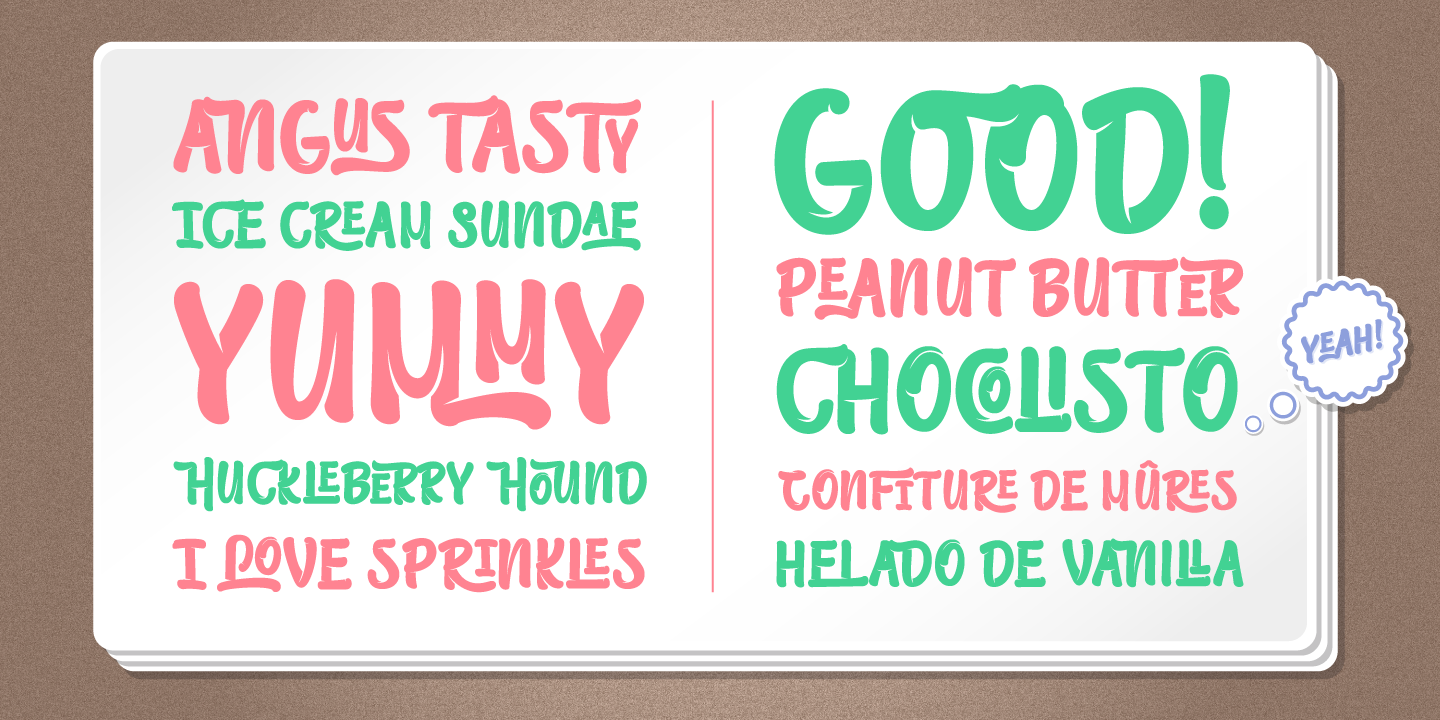 ANGUS TASTY
ICE CREAM SUNDAE
YUMMY
HUCKLEBERRY HOUND
I LOVE SPRINKLES
GOOD!
PEANUT BUTTER
CHOCLISTO
CONFITURE DE MÛRES
HELADO DE VANILLA
YEAH!